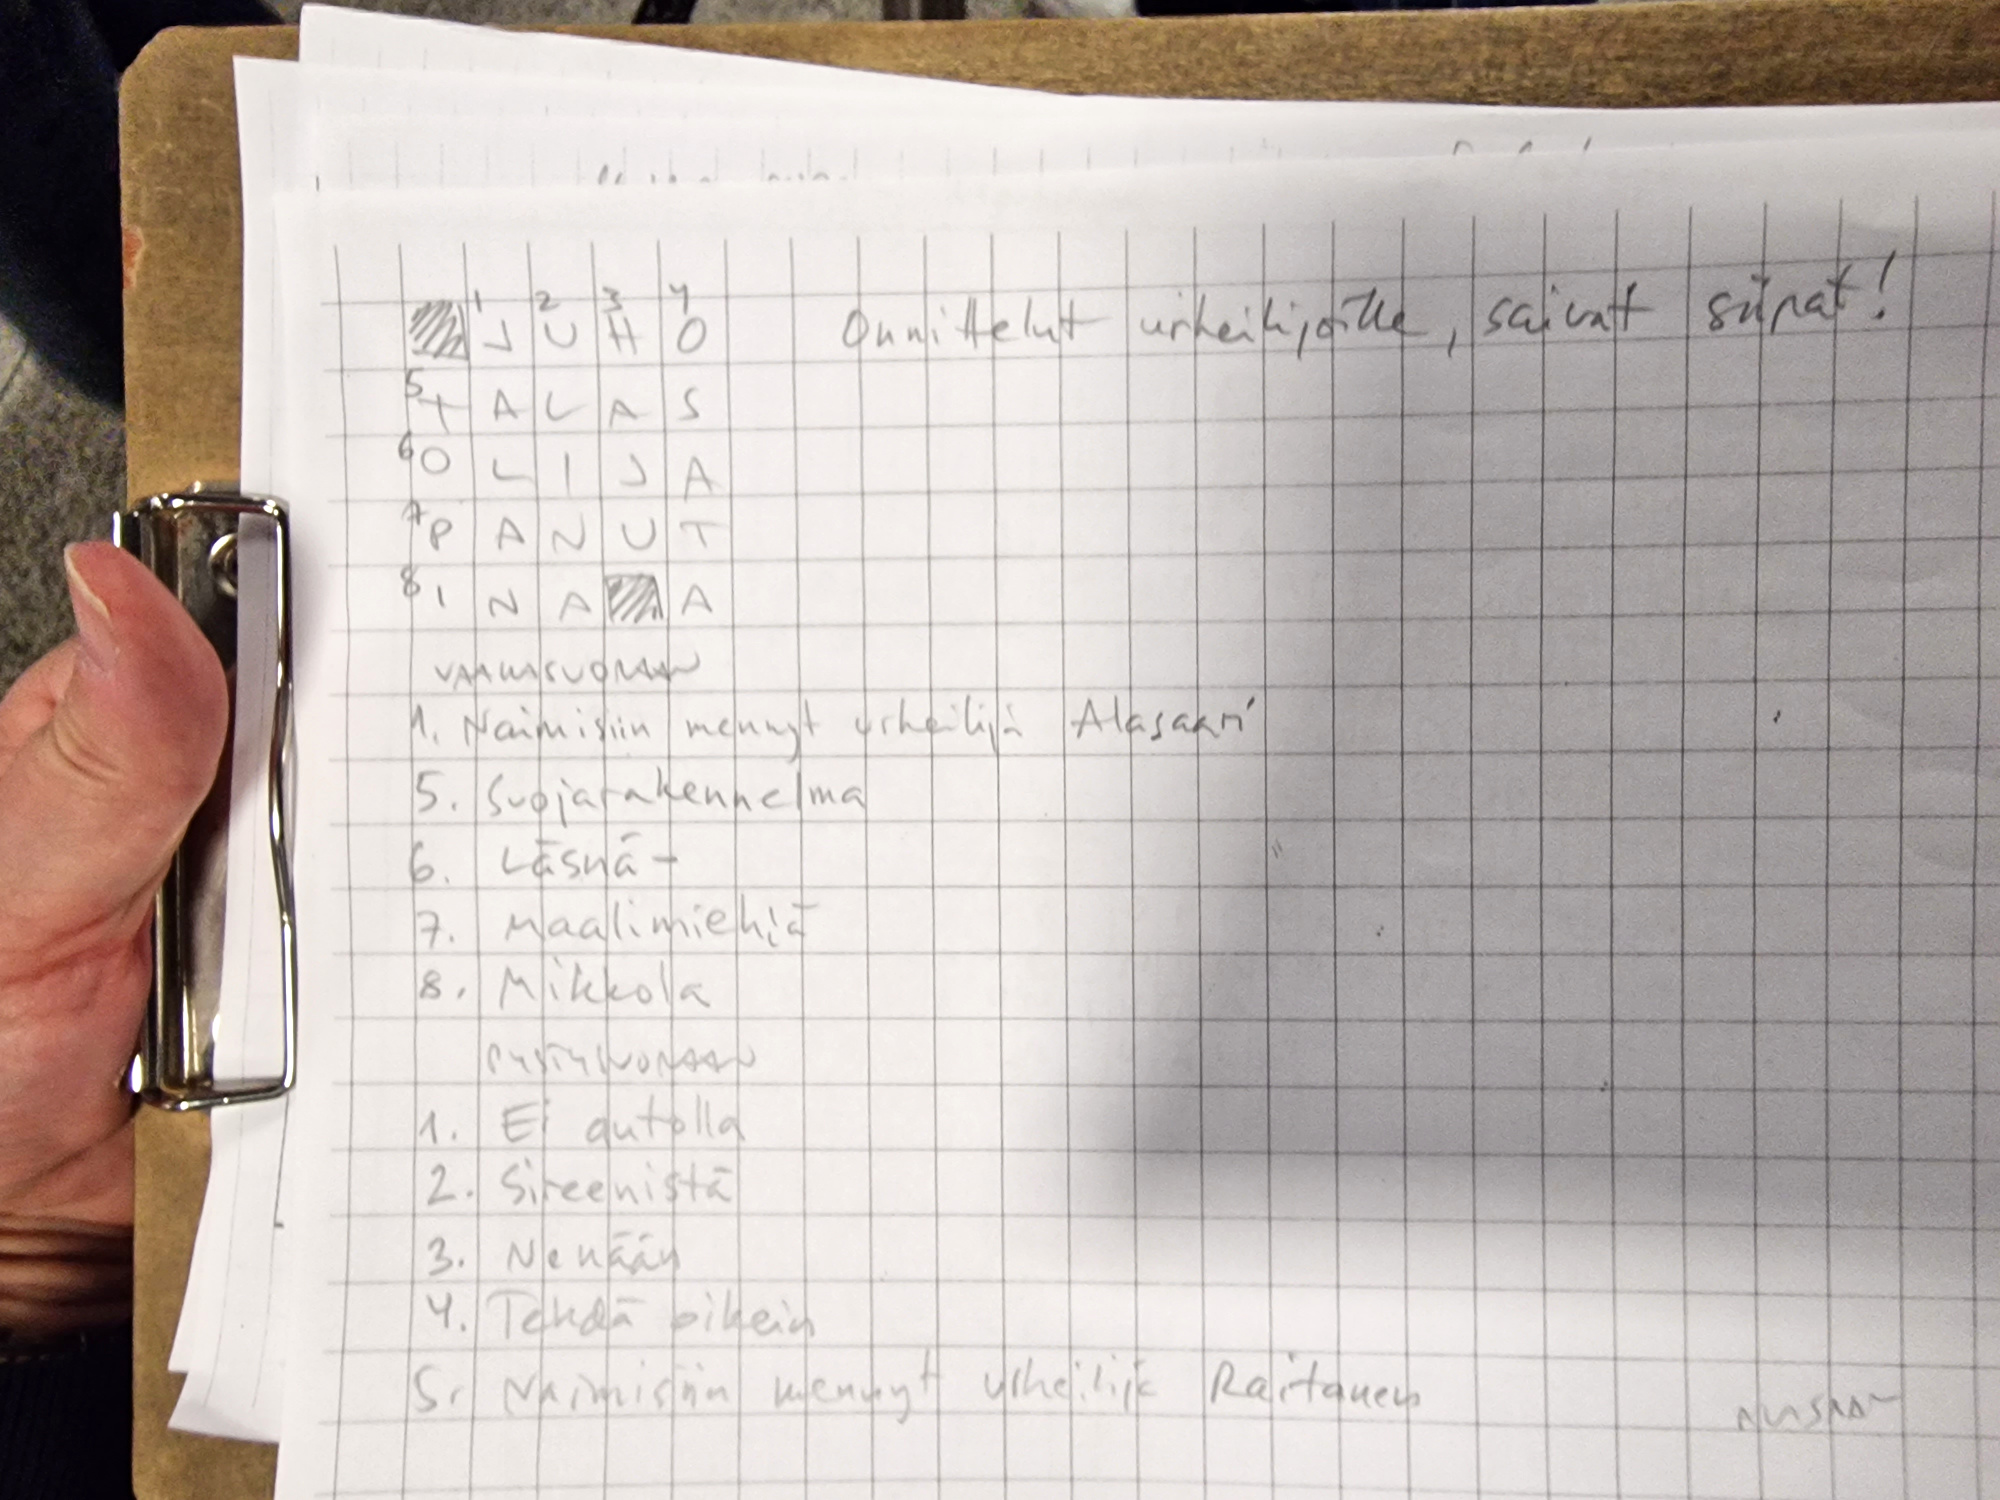 1 2 3 4
J U H O Onnittelut urheilijoille, saivat siipat!
5 T A L A S
6 O L I J A
7 P A N U T
8 I N A A
VAAKASUORAAN
1. Naimisiin mennyt urheilija Alasaari
5. Suojarakennelma
6. Läsnä-
7. Maalimiehiä
8. Mikkola
PYSTYSUORAAN
1. Ei autolla
2. Sireenistä
3. Nenään
4. Tehdä oikein
5. Naimisiin mennyt urheilija Raitanen